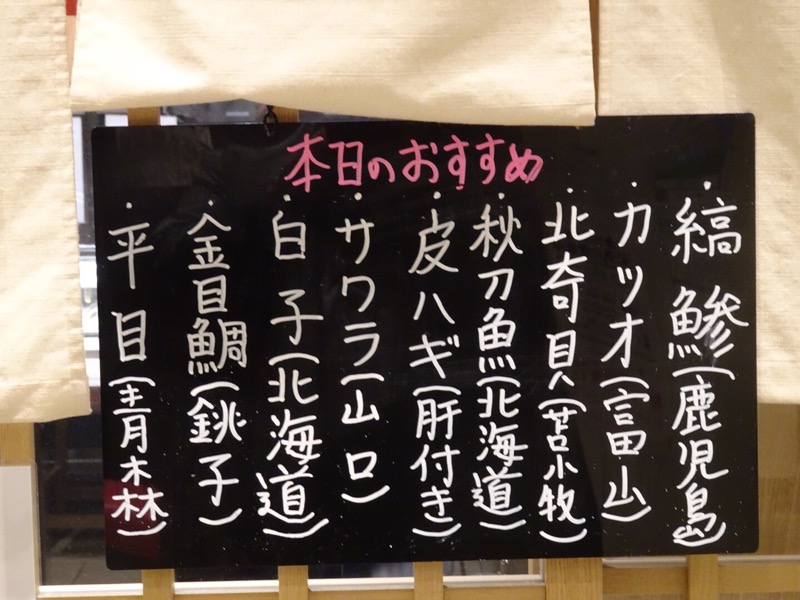 本日のおすすめ
・縞鯵(鹿児島)
・カツオ(富山)
・北寄貝(苫小牧)
・秋刀魚(北海道)
・皮ハギ(肝付き)
・サワラ(山口)
・白子(北海道)
・金目鯛(銚子)
・平目(青森)